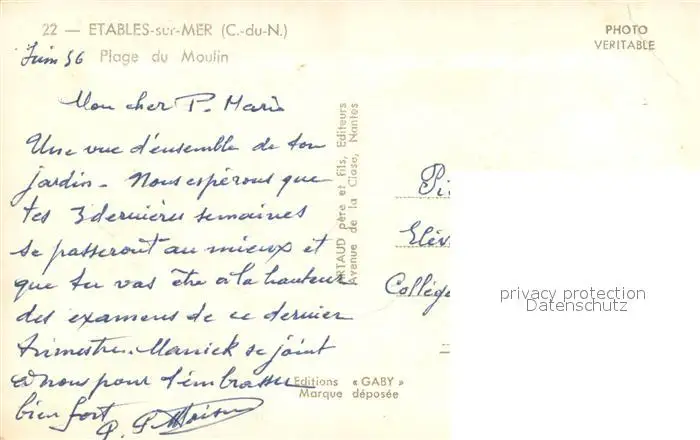 22 — ETABLES-sur-MER (C.-du-N.)
Juin 56 Plage du Moulin
PHOTO
VERITABLE
Mon cher P. Marie
Une vue d'ensemble de ton
jardin - Nous espérons que
tes 3 dernières semaines
se passeront au mieux et
que tu vas être à la hauteur
des examens de ce dernier
trimestre. Manick se joint
à nous pour t'embrasser
bien fort
ARTAUD père et fils, Editeurs
Avenue de la Close, Nantes
Elèv
Collège
privacy protection
Datenschutz
Editions « GABY »
Marque déposée